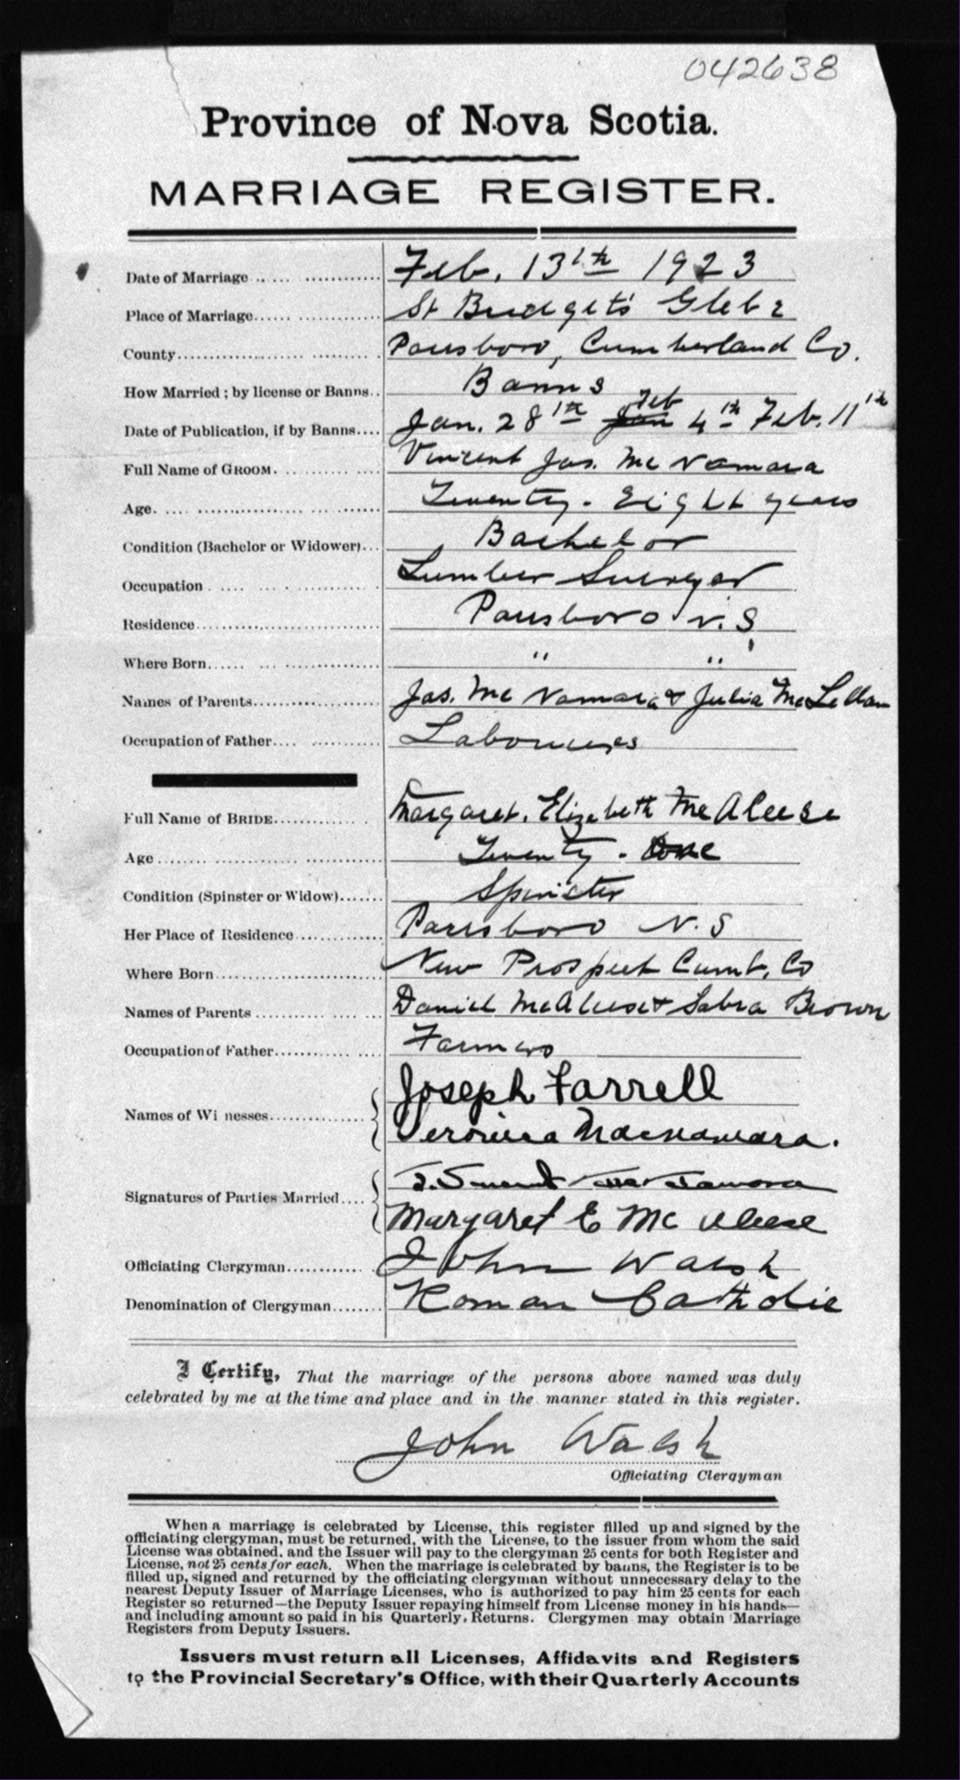 042638
Province of Nova Scotia.
MARRIAGE REGISTER.
Date of Marriage Feb. 13th 1923
Place of Marriage St Bridget's Glebe
County Parrsboro, Cumberland Co.
How Married; by license or Banns Banns
Date of Publication, if by Banns Jan. 28th Feb 4th Feb. 11th
Full Name of GROOM Vincent Jas. McNamara
Age Twenty-Eight years
Condition (Bachelor or Widower) Bachelor
Occupation Lumber Surveyor
Residence Parrsboro N.S.
Where Born " "
Names of Parents Jas. McNamara & Julia McLellan
Occupation of Father Labourer
Full Name of BRIDE Margaret Elizabeth McAleese
Age Twenty-One
Condition (Spinster or Widow) Spinster
Her Place of Residence Parrsboro N.S
Where Born New Prospect Cumb. Co
Names of Parents Daniel McAleese & Sabra Brown
Occupation of Father Farmer
Names of Wi nesses Joseph Farrell
Veronica Macnamara.
Signatures of Parties Married J. Vincent McNamara
Margaret E McAleese
Officiating Clergyman John Walsh
Denomination of Clergyman Roman Catholic
I Certify, That the marriage of the persons above named was duly
celebrated by me at the time and place and in the manner stated in this register.
John Walsh
Officiating Clergyman
When a marriage is celebrated by License, this register filled up and signed by the
officiating clergyman, must be returned, with the License, to the issuer from whom the said
License was obtained, and the Issuer will pay to the clergyman 25 cents for both Register and
License, not 25 cents for each. When the marriage is celebrated by banns, the Register is to be
filled up, signed and returned by the officiating clergyman without unnecessary delay to the
nearest Deputy Issuer of Marriage Licenses, who is authorized to pay him 25 cents for each
Register so returned—the Deputy Issuer repaying himself from License money in his hands—
and including amount so paid in his Quarterly. Returns. Clergymen may obtain Marriage
Registers from Deputy Issuers.
Issuers must return all Licenses, Affidavits and Registers
to the Provincial Secretary's Office, with their Quarterly Accounts